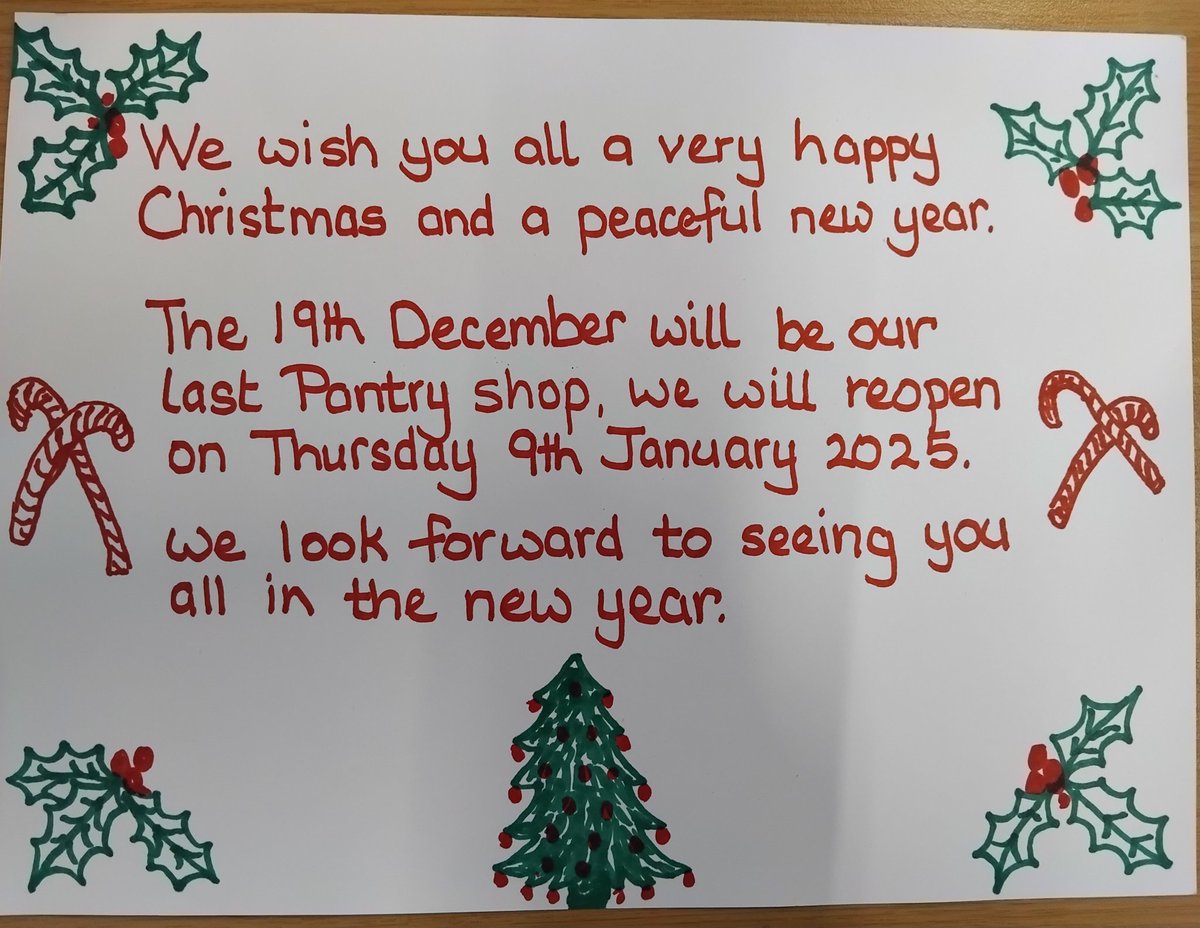 We wish you all a very happy
Christmas and a peaceful new year.
The 19th December will be our
last Pantry shop, we will reopen
on Thursday 9th January 2025.
we look forward to seeing you
all in the new year.